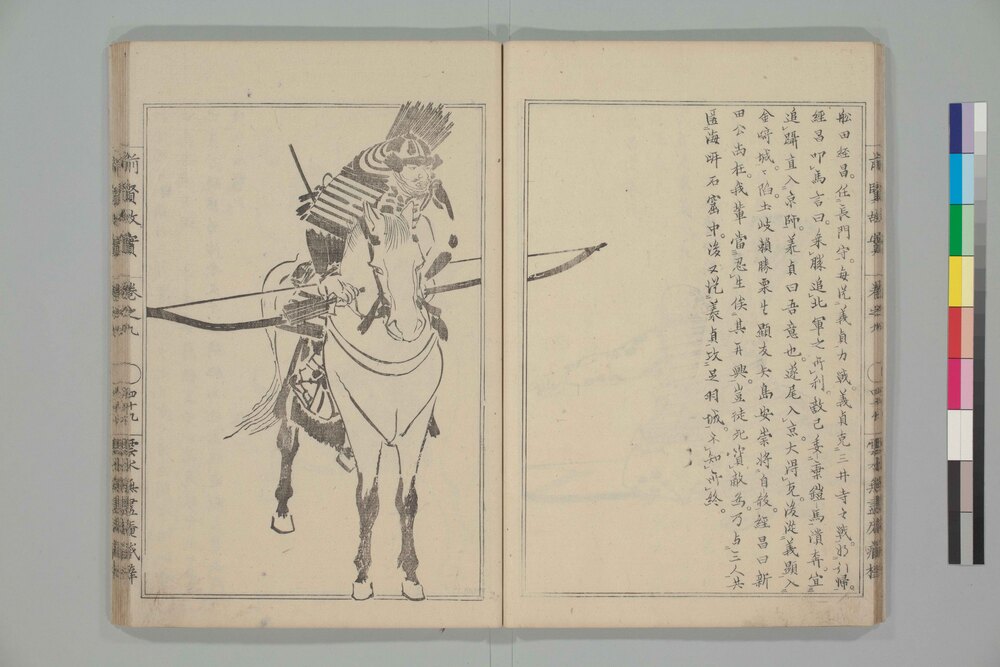 舩田經昌。任長門守。毎從義貞力戰。義貞克三井寺之戰。將引歸。
經昌叩馬言曰。乘勝追北軍之所利。敵已委棄鎧馬潰奔。宜
追躡直入京師。義貞曰吾意也。遂尾入京大得克。後從義顯入
金﨑城。〻陷。土岐頼勝栗生顯友矢島安崇將自殺。經昌曰新
田公尚在。我輩當忍生俟其再興。豈徒死資敵爲。乃与三人共
匿海岍石窟中。後又從義貞攻足羽城。不知所終。
前賢故實 卷之九 四十九 雲水無盡庵藏梓